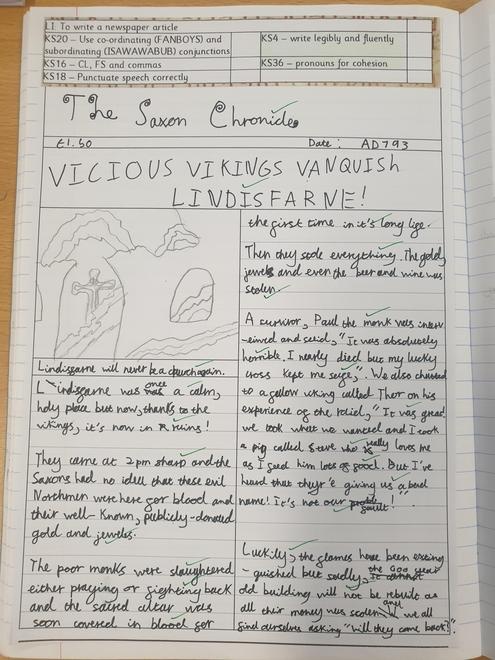 LI: To write a newspaper article
KS20 – Use co-ordinating (FANBOYS) and subordinating (ISAWAWABUB) conjunctions
KS4 – write legibly and fluently
KS16 – CL, FS and commas
KS36 – pronouns for cohesion
KS18 – Punctuate speech correctly
The Saxon Chronicle
£1.50
Date: AD793
VICIOUS VIKINGS VANQUISH
LINDISFARNE!
Lindisfarne will never be a church again.
Lindisfarne was once a calm,
holy place but now, thanks to the
vikings, it's now in ruins!
They came at 2pm sharp and the
Saxons had no idea that these evil
Northmen were here for blood and
their well-known, publicly-donated
gold and jewels.
The poor monks were slaughtered
either praying or fighting back
and the sacred altar was
soon covered in blood for
the first time in it's long life.
Then they stole everything. The gold,
jewels and even the beer and wine was
stolen.
A survivor, Paul the monk was interv
-eiwed and said, "It was absolutely
horrible. I nearly died but my lucky
cross kept me safe,". We also chatted
to a fellow viking called Thor on his
experience of the raid, "It was great,
we took what we wanted and I took
a pig called Steve who really loves me
as I feed him lots of food. But I've
heard that they'r'e giving us a bad
name! It's not our fault!".
Luckily, the flames have been exting
-guished but sadly, the 600 year
old building will not be rebuilt as
all their money was stolen and we all
find ourselves asking "will they come back?".